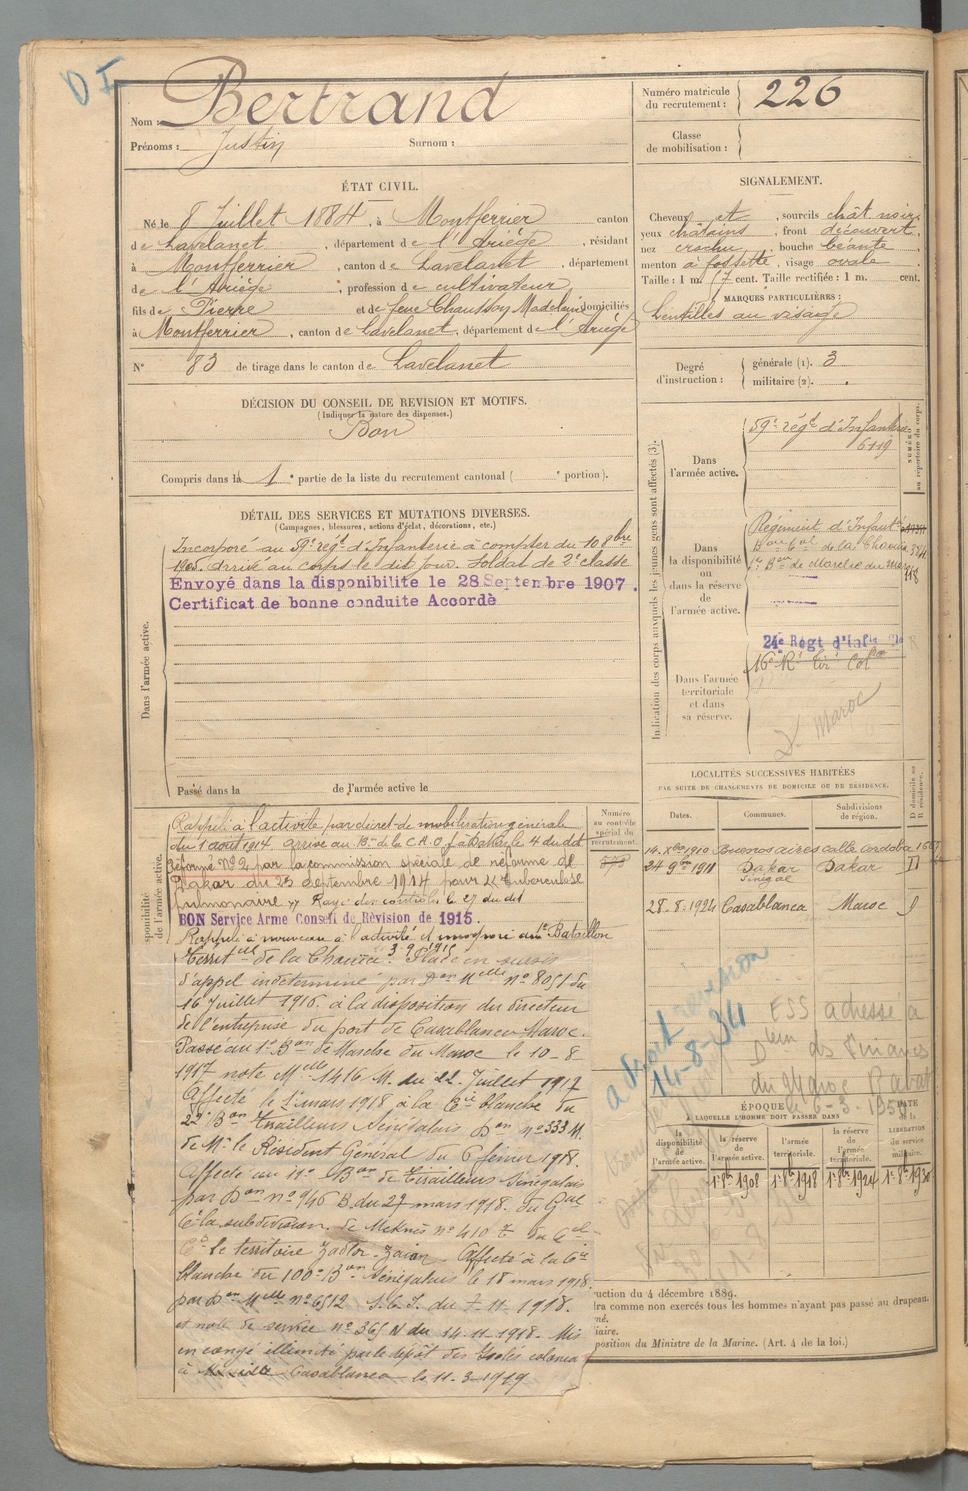 D I
Nom : Bertrand
Prénoms : Justin Surnom :
Numéro matricule
du recrutement : 226
Classe
de mobilisation :
ÉTAT CIVIL.
Né le 8 Juillet 1884, à Montferrier canton
de Lavelanet, département de l'Ariège, résidant
à Montferrier, canton de Lavelanet, département
de l'Ariège, profession de cultivateur,
fils de Pierre et de feue Chausson Madelaine domiciliés
à Montferrier, canton de Lavelanet, département de l'Ariège
N° 83 de tirage dans le canton de Lavelanet
SIGNALEMENT.
Cheveux et, sourcils chât. noirs,
yeux châtains, front découvert,
nez crochu, bouche béante,
menton à fossette, visage ovale.
Taille : 1 m. 67 cent. Taille rectifiée : 1 m. cent.
MARQUES PARTICULIÈRES :
Lentilles au visage
Degré
d'instruction :
générale (1). 3
militaire (2).
DÉCISION DU CONSEIL DE REVISION ET MOTIFS.
(Indiquer la nature des dispenses.)
Bon
Compris dans la 1e partie de la liste du recrutement cantonal ( e portion).
DÉTAIL DES SERVICES ET MUTATIONS DIVERSES.
(Campagnes, blessures, actions d'éclat, décorations, etc.)
Dans l'armée active.
Incorporé au 59e régt d'Infanterie à compter du 10 8bre
1905. Arrivé au corps le dit jour. Soldat de 2e classe
Envoyé dans la disponibilite le 28 Septembre 1907.
Certificat de bonne conduite Accordè
Passé dans la de l'armée active le
Indication des corps auxquels les jeunes gens sont affectés (3).
NUMÉRO
au répertoire du corps.
Dans
l'armée active.
59e régt d'Infanterie
6119
Dans
la disponibilité
ou
dans la réserve
de
l'armée active.
Régiment d'Infantie
Bon de la Chaouia
1er Bon de Marche du Maroc
Dans l'armée
territoriale
et dans
sa réserve.
24e Régt d'Infie
16e Rt Tir Colx
Maroc
LOCALITÉS SUCCESSIVES HABITÉES
PAR SUITE DE CHANGEMENTS DE DOMICILE OU DE RÉSIDENCE.
Dates. Communes. Subdivisions
de région.
D domicile ou
R résidence.
14. Xbre 1910 Buenos aires calle cordoba
24 9bre 1911 Dakar Dakar
Sénégal
28-8-1924 Casablanca Maroc
Numéro
au contrôle
spécial du
recrutement.
Rappelé à l'activité par décret de mobilisation générale
du 1 août 1914. Arrivé au Bon de la C.A.O.f. à Dakar le 4 du dit
Réformé No 2 par la commission spéciale de réforme de
Dakar du 25 septembre 1914 pour Tuberculose
pulmonaire Rayé des contrôles le 27 du dit
BON Service Arme Conseil de Rèvision de 1915.
Rappelé à nouveau à l'activité et Bataillon
Territal de la Chaouïa 3-9-1915 Placé en sursis
d'appel indéterminé par Don Melle no 8051 du
16 Juillet 1916. à la disposition du directeur
de l'entreprise du port de Casablanca Maroc.
Passé au 1er Bon de Marche du Maroc le 10-8
1917 note Melle 1416 M. du 22. Juillet 1917
Affecté le 1er mars 1918 à la Cie blanche du
Bon tirailleurs Sénégalais Don no 333 M.
de Mr le Résident Général du 6 février 1918.
Affecté au Bon de Tirailleurs Sénégalais
par Don no 946 B du 27 mars 1918. du Gal
Ct la subdivision. de Meknès no 410 du Cel
Ct le territoire Tadla-Zaïan Affecté à la Cie
blanche du 100e Bon Sénégalais le 18 mars 1918.
par Don Melle no 6512 du 7-11-1918.
et note de service no 365 N du 14-11-1918. Mis
en congé illimité par le dépôt des Isolés coloniaux
à Casablanca le 11-3-1919
A droit pension
14-8-34
ESS adresse à
des Finances
du Maroc Rabat
6-3-1950
ÉPOQUE
À LAQUELLE L'HOMME DOIT PASSER DANS
la
disponibilité
de
l'armée active.
la réserve
de
l'armée active.
l'armée
territoriale.
la réserve
de
l'armée
territoriale.
DATE
de la
LIBÉRATION
du service
militaire.
1er 8bre 1908 1er 8bre 1918 1er 8bre 1924 1er 8bre 1930
ruction du 4 décembre 1889.
dra comme non exercés tous les hommes n'ayant pas passé au drapeau.
né.
iaire.
position du Ministre de la Marine. (Art. 4 de la loi.)